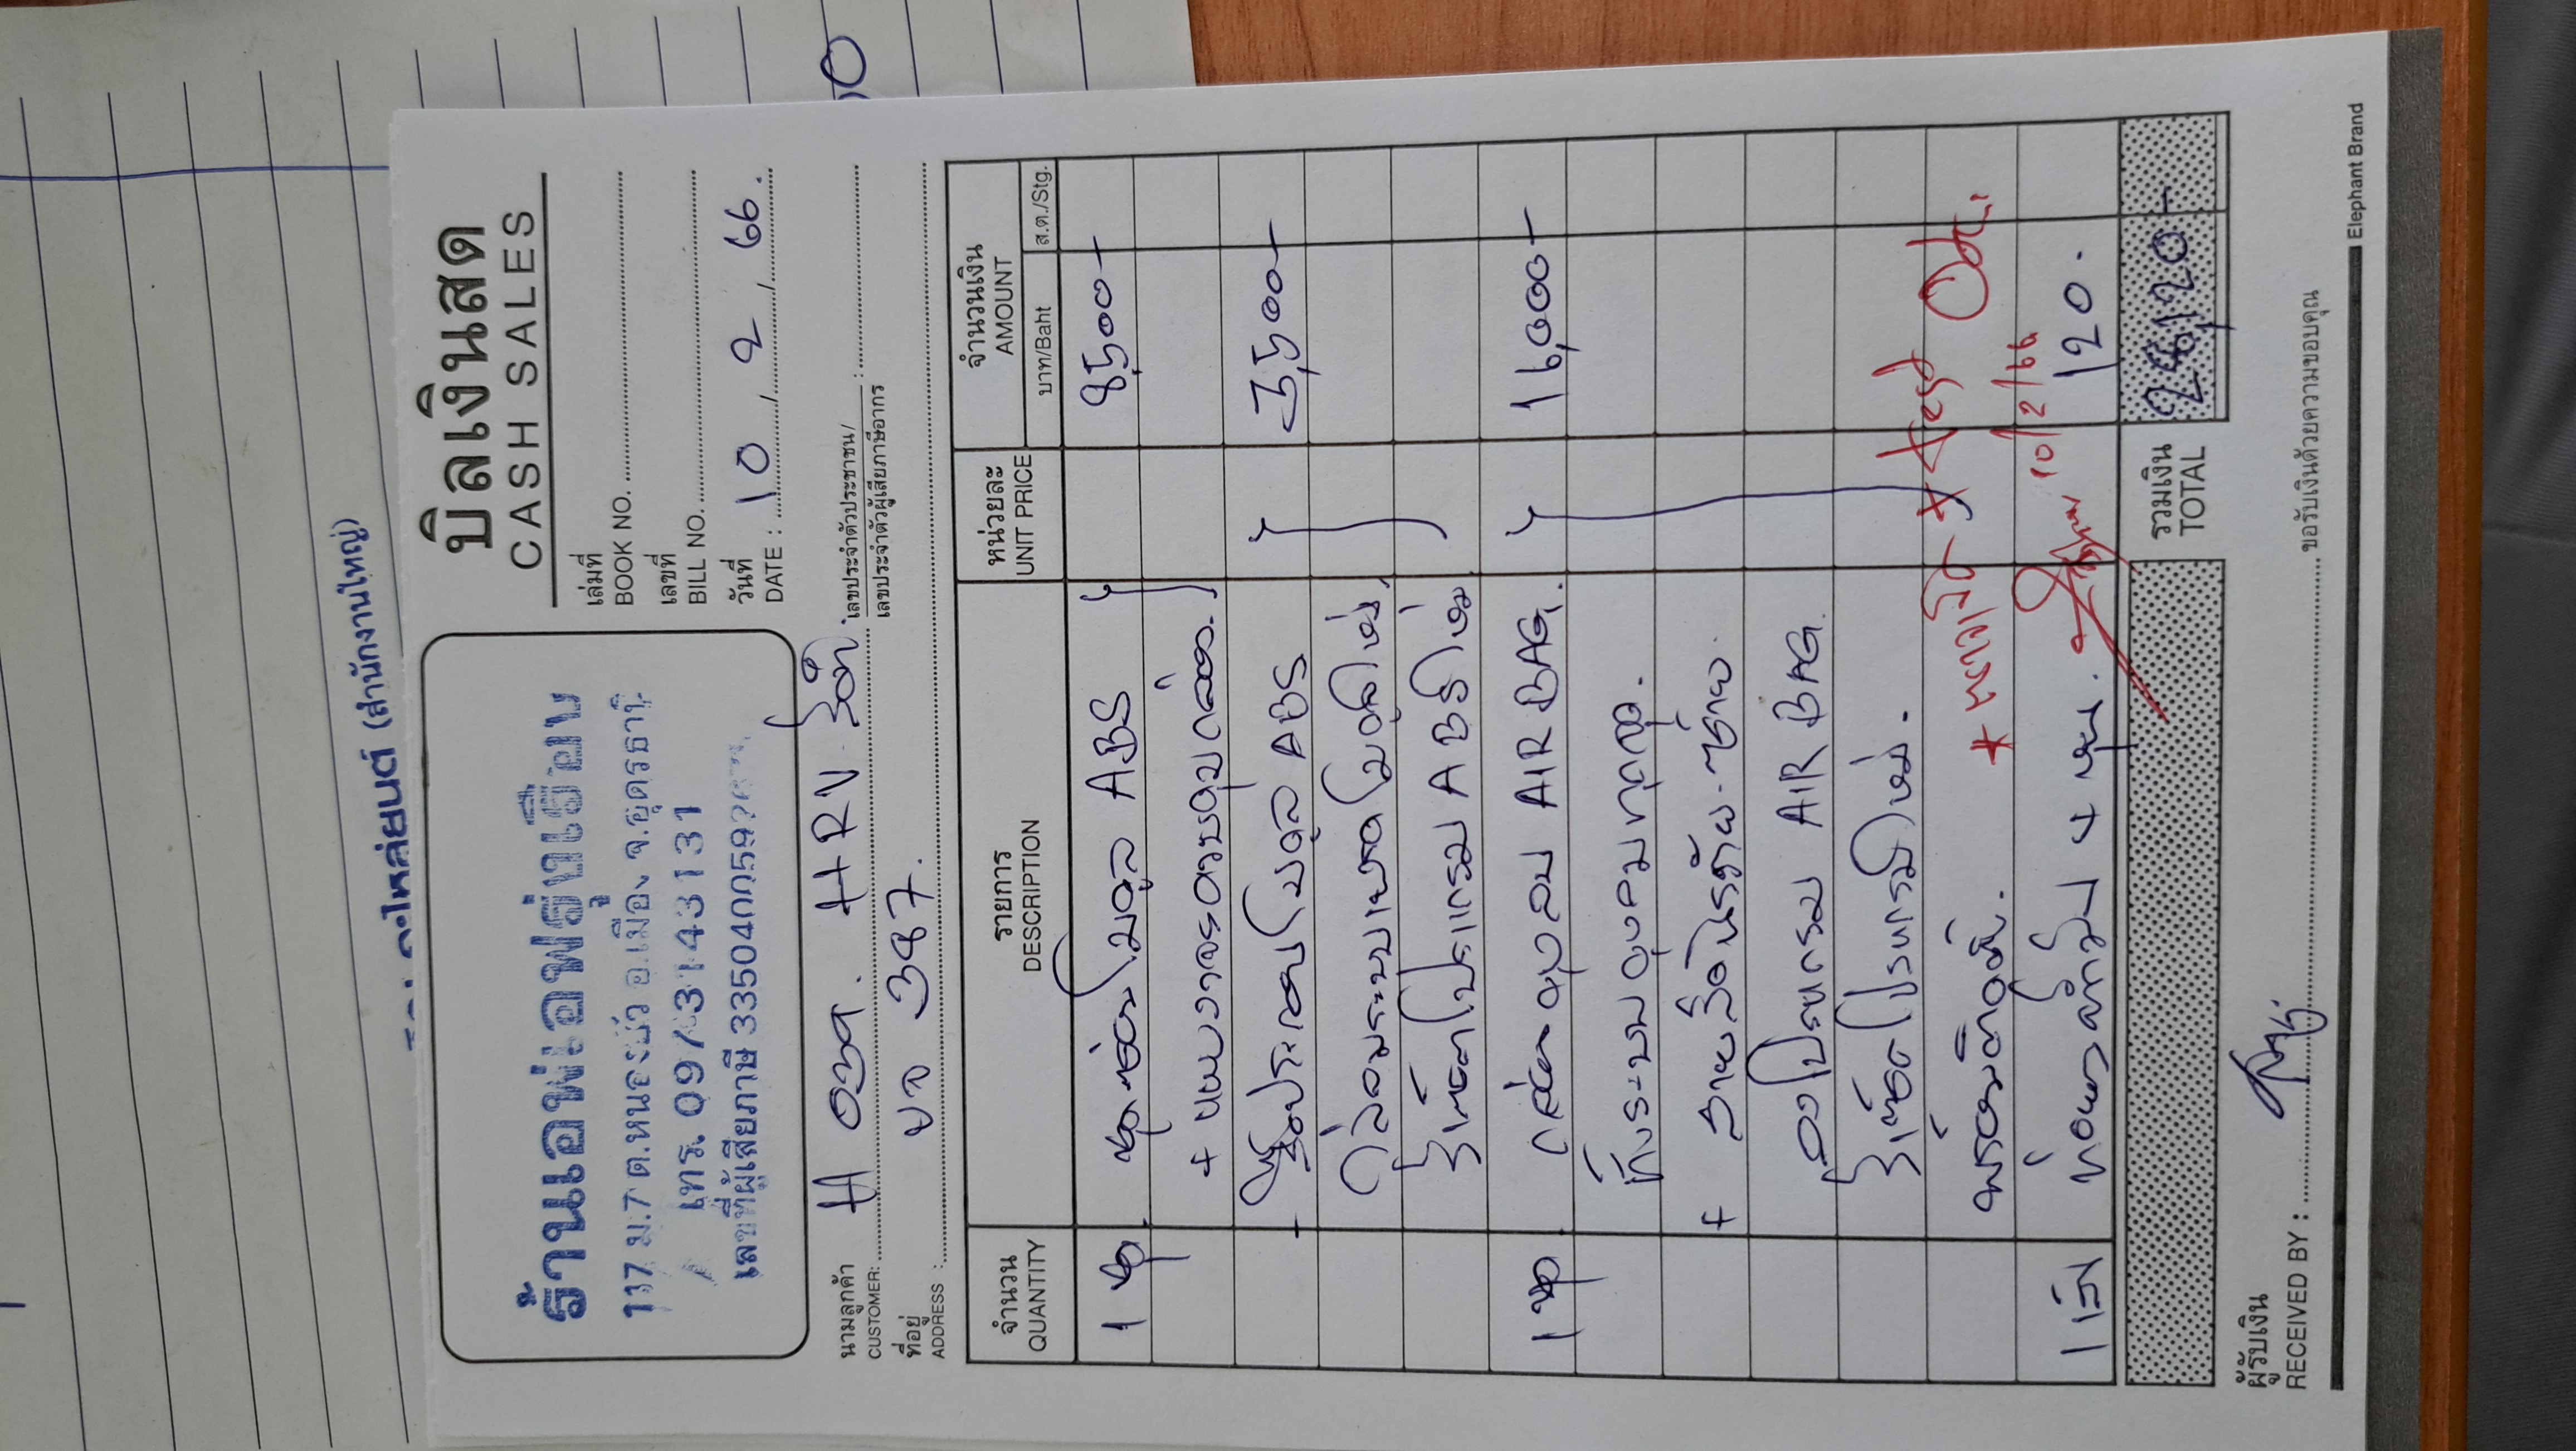 (สำนักงานใหญ่)
บิลเงินสด
CASH SALES
ร้านเอฟเอฟรุ่งเรือง
ม.7 ต.หนองบัว อ.เมือง จ.อุดรธานี
โทร. 097 3143131
เลขที่ผู้เสียภาษี
เล่มที่
BOOK NO.
เลขที่
BILL NO.
วันที่
DATE : 10, 2, 66.
นามลูกค้า
CUSTOMER: H อนด. HRV
เลขประจำตัวประชาชน/
เลขประจำตัวผู้เสียภาษีอากร :
ที่อยู่
ADDRESS : 387.
จำนวน
QUANTITY
รายการ
DESCRIPTION
หน่วยละ
UNIT PRICE
จำนวนเงิน
AMOUNT
บาท/Baht
ส.ต./Stg.
1 ชุด ชุดซ่อมโมดูล ABS 8,500-
+ แผงวงจรควบคุมกล่อง.
+ ชุดประกอบโมดูล ABS 3,500-
ไล่ลมระบบเบรคโมดูลใหม่
รีเซ็ตโปรแกรม ABS ใหม่
1 ชุด กล่องควบคุม AIR BAG. 16,000-
เก็บระบบควบคุมทุกจุด.
+ สายสไลด์พร้อม-ซ้าย
ลงโปรแกรม AIR BAG
รีเซ็ตโปรแกรมใหม่.
พร้อมติดตั้ง.
10/2/66
120.
รวมเงิน
TOTAL
28,120-
ผู้รับเงิน
RECEIVED BY :
ขอรับเงินด้วยความขอบคุณ
Elephant Brand